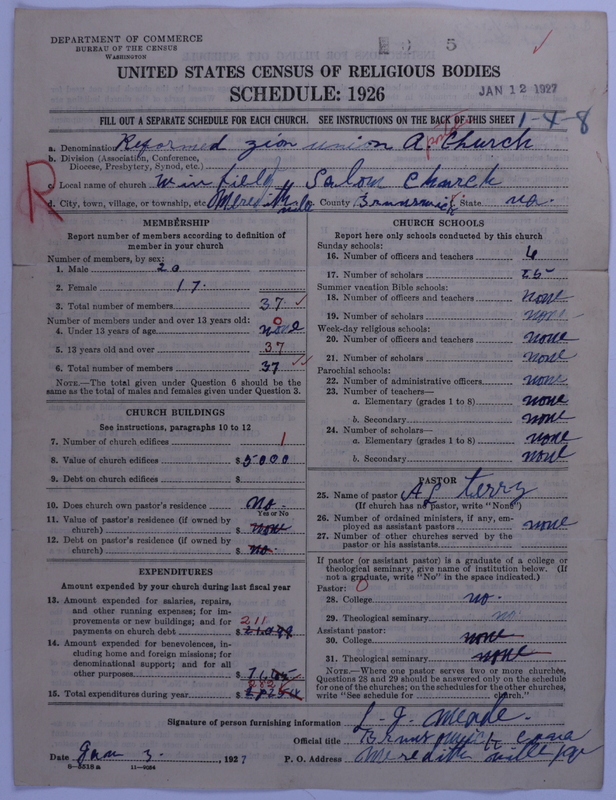 DEPARTMENT OF COMMERCE
BUREAU OF THE CENSUS
WASHINGTON
5
UNITED STATES CENSUS OF RELIGIOUS BODIES
SCHEDULE: 1926
JAN 12 1927
FILL OUT A SEPARATE SCHEDULE FOR EACH CHURCH. SEE INSTRUCTIONS ON THE BACK OF THIS SHEET
1-4-8
a. Denomination Reformed Zion union A. Church
b. Division (Association, Conference, Diocese, Presbytery, Synod, etc.)
R
c. Local name of church Winfield Salom Church
d. City, town, village, or township, etc. Meredithville County Brunswick State va.
MEMBERSHIP
Report number of members according to definition of member in your church
Number of members, by sex:
1. Male 20
2. Female 17.
3. Total number of members 37
Number of members under and over 13 years old:
4. Under 13 years of age none 0
5. 13 years old and over 37
6. Total number of members 37
NOTE.—The total given under Question 6 should be the same as the total of males and females given under Question 3.
CHURCH BUILDINGS
See instructions, paragraphs 10 to 12
7. Number of church edifices 1
8. Value of church edifices $5000
9. Debt on church edifices $
10. Does church own pastor's residence no.
Yes or No
11. Value of pastor's residence (if owned by church) $ none
12. Debt on pastor's residence (if owned by church) $ no.
EXPENDITURES
Amount expended by your church during last fiscal year
13. Amount expended for salaries, repairs, and other running expenses; for improvements or new buildings; and for payments on church debt $ 211
14. Amount expended for benevolences, including home and foreign missions; for denominational support; and for all other purposes $
15. Total expenditures during year $ 282
CHURCH SCHOOLS
Report here only schools conducted by this church
Sunday schools:
16. Number of officers and teachers 6
17. Number of scholars 25
Summer vacation Bible schools:
18. Number of officers and teachers none
19. Number of scholars none
Week-day religious schools:
20. Number of officers and teachers none
21. Number of scholars none
Parochial schools:
22. Number of administrative officers none
23. Number of teachers—
a. Elementary (grades 1 to 8) none
b. Secondary none
24. Number of scholars—
a. Elementary (grades 1 to 8) none
b. Secondary none
PASTOR
25. Name of pastor A J Terry
(If church has no pastor, write "None")
26. Number of ordained ministers, if any, employed as assistant pastors none
27. Number of other churches served by the pastor or his assistants
If pastor (or assistant pastor) is a graduate of a college or theological seminary, give name of institution below. (If not a graduate, write "No" in the space indicated.)
Pastor: 0
28. College no.
29. Theological seminary no.
Assistant pastor:
30. College none
31. Theological seminary none
NOTE.—Where one pastor serves two or more churches, Questions 28 and 29 should be answered only on the schedule for one of the churches; on the schedules for the other churches, write "See schedule for church."
Signature of person furnishing information L. J. Meade.
Official title
Date Jan 3. , 1927
P. O. Address Meredithville va
8—5518a 11—9084